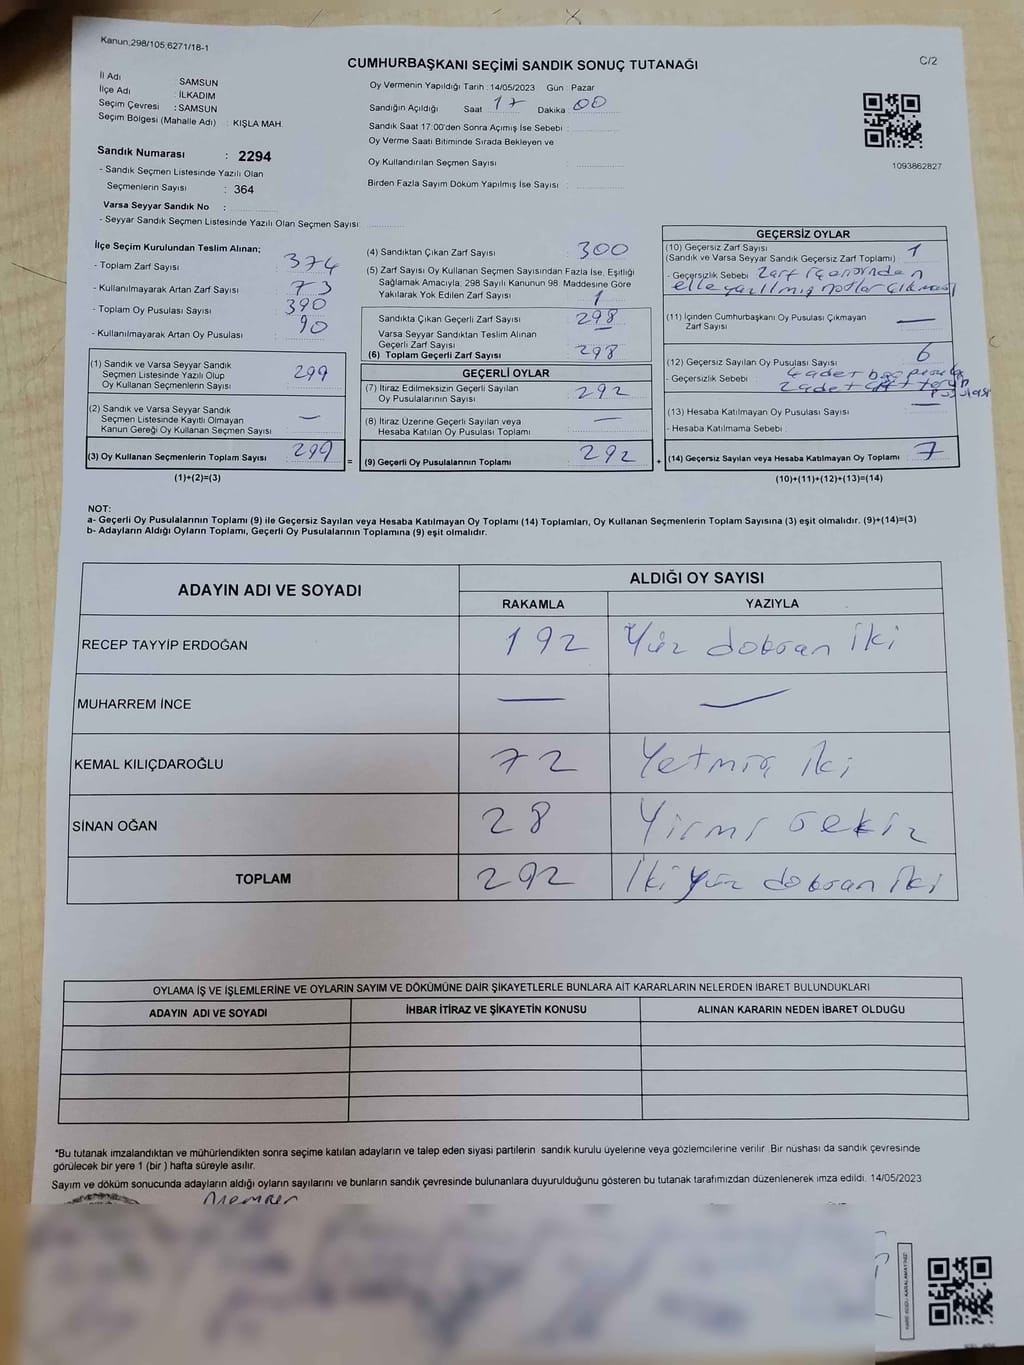 Kanun:298/105,6271/18-1
C/2
CUMHURBAŞKANI SEÇİMİ SANDIK SONUÇ TUTANAĞI
İl Adı : SAMSUN
İlçe Adı : İLKADIM
Seçim Çevresi : SAMSUN
Seçim Bölgesi (Mahalle Adı) : KIŞLA MAH.
Oy Vermenin Yapıldığı Tarih : 14/05/2023 Gün : Pazar
Sandığın Açıldığı Saat 17 Dakika : 00
Sandık Saat 17:00'den Sonra Açımış İse Sebebi :
Oy Verme Saati Bitiminde Sırada Bekleyen ve
Oy Kullandırılan Seçmen Sayısı :
Birden Fazla Sayım Döküm Yapılmış İse Sayısı :
1093862827
Sandık Numarası : 2294
- Sandık Seçmen Listesinde Yazılı Olan
Seçmenlerin Sayısı : 364
Varsa Seyyar Sandık No :
- Seyyar Sandık Seçmen Listesinde Yazılı Olan Seçmen Sayısı:
İlçe Seçim Kurulundan Teslim Alınan;
- Toplam Zarf Sayısı : 374
- Kullanılmayarak Artan Zarf Sayısı : 73
- Toplam Oy Pusulası Sayısı : 390
- Kullanılmayarak Artan Oy Pusulası : 90
(1) Sandık ve Varsa Seyyar Sandık
Seçmen Listesinde Yazılı Olup
Oy Kullanan Seçmenlerin Sayısı : 299
(2) Sandık ve Varsa Seyyar Sandık
Seçmen Listesinde Kayıtlı Olmayan
Kanun Gereği Oy Kullanan Seçmen Sayısı : —
(3) Oy Kullanan Seçmenlerin Toplam Sayısı : 299
(1)+(2)=(3)
=
(4) Sandıktan Çıkan Zarf Sayısı : 300
(5) Zarf Sayısı Oy Kullanan Seçmen Sayısından Fazla İse, Eşitliği
Sağlamak Amacıyla; 298 Sayılı Kanunun 98. Maddesine Göre
Yakılarak Yok Edilen Zarf Sayısı : 1
Sandıkta Çıkan Geçerli Zarf Sayısı : 298
Varsa Seyyar Sandıktan Teslim Alınan
Geçerli Zarf Sayısı : —
(6) Toplam Geçerli Zarf Sayısı : 298
GEÇERLİ OYLAR
(7) İtiraz Edilmeksizin Geçerli Sayılan
Oy Pusulalarının Sayısı : 292
(8) İtiraz Üzerine Geçerli Sayılan veya
Hesaba Katılan Oy Pusulası Toplamı : —
(9) Geçerli Oy Pusulalarının Toplamı : 292
+
GEÇERSİZ OYLAR
(10) Geçersiz Zarf Sayısı : 1
(Sandık ve Varsa Seyyar Sandık Geçersiz Zarf Toplamı)
- Geçersizlik Sebebi : Zarf içerisinden
elle yazılmış notlar çıkması
(11) İçinden Cumhurbaşkanı Oy Pusulası Çıkmayan
Zarf Sayısı : —
(12) Geçersiz Sayılan Oy Pusulası Sayısı : 6
- Geçersizlik Sebebi : 4 adet boş pusula
2 adet çift tercih
pusulası
(13) Hesaba Katılmayan Oy Pusulası Sayısı : —
- Hesaba Katılmama Sebebi :
(14) Geçersiz Sayılan veya Hesaba Katılmayan Oy Toplamı : 7
(10)+(11)+(12)+(13)=(14)
NOT:
a- Geçerli Oy Pusulalarının Toplamı (9) ile Geçersiz Sayılan veya Hesaba Katılmayan Oy Toplamı (14) Toplamları, Oy Kullanan Seçmenlerin Toplam Sayısına (3) eşit olmalıdır. (9)+(14)=(3)
b- Adayların Aldığı Oyların Toplamı, Geçerli Oy Pusulalarının Toplamına (9) eşit olmalıdır.
ADAYIN ADI VE SOYADI
ALDIĞI OY SAYISI
RAKAMLA YAZIYLA
RECEP TAYYİP ERDOĞAN 192 Yüz doksan iki
MUHARREM İNCE — —
KEMAL KILIÇDAROĞLU 72 Yetmiş iki
SİNAN OĞAN 28 Yirmi sekiz
TOPLAM 292 İki yüz doksan iki
OYLAMA İŞ VE İŞLEMLERİNE VE OYLARIN SAYIM VE DÖKÜMÜNE DAİR ŞİKAYETLERLE BUNLARA AİT KARARLARIN NELERDEN İBARET BULUNDUKLARI
ADAYIN ADI VE SOYADI İHBAR İTİRAZ VE ŞİKAYETİN KONUSU ALINAN KARARIN NEDEN İBARET OLDUĞU
*Bu tutanak imzalandıktan ve mühürlendikten sonra seçime katılan adayların ve talep eden siyasi partilerin sandık kurulu üyelerine veya gözlemcilerine verilir. Bir nüshası da sandık çevresinde
görülecek bir yere 1 (bir) hafta süreyle asılır.
Sayım ve döküm sonucunda adayların aldığı oyların sayılarını ve bunların sandık çevresinde bulunanlara duyurulduğunu gösteren bu tutanak tarafımızdan düzenlenerek imza edildi. 14/05/2023